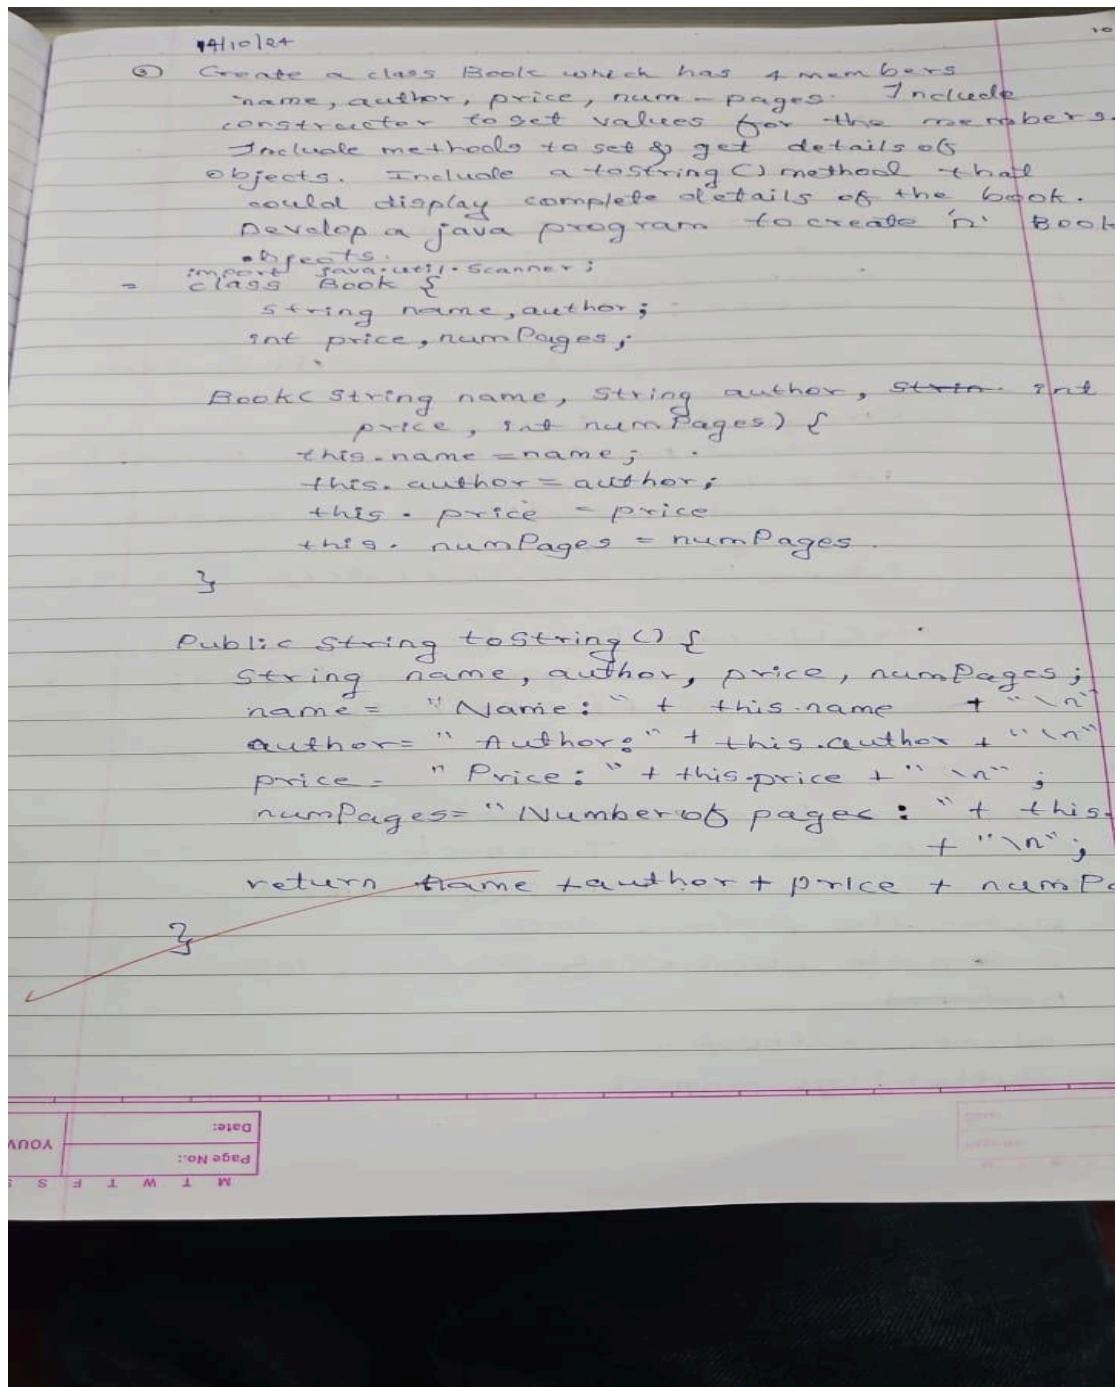 14/10/24
10
③ Create a class Book which has 4 members
name, author, price, num-pages. Include
constructor to set values for the members.
Include methods to set & get details of
objects. Include a toString() method that
could display complete details of the book.
Develop a java program to create 'n' Book
objects.
import java.util.Scanner;
= class Book {
string name, author;
int price, numPages;
Book( String name, String author, int
price, int numPages) {
this.name = name;
this.author = author;
this.price = price
this.numPages = numPages.
}
Public String toString() {
string name, author, price, numPages;
name = "Name: " + this.name + "\n"
author = "Author: " + this.author + "\n"
price = "Price: " + this.price + "\n";
numPages = "Number of pages: " + this.
+ "\n";
return name + author + price + numPa
}
Date:
Page No.:
YOUV
M T W T F S S